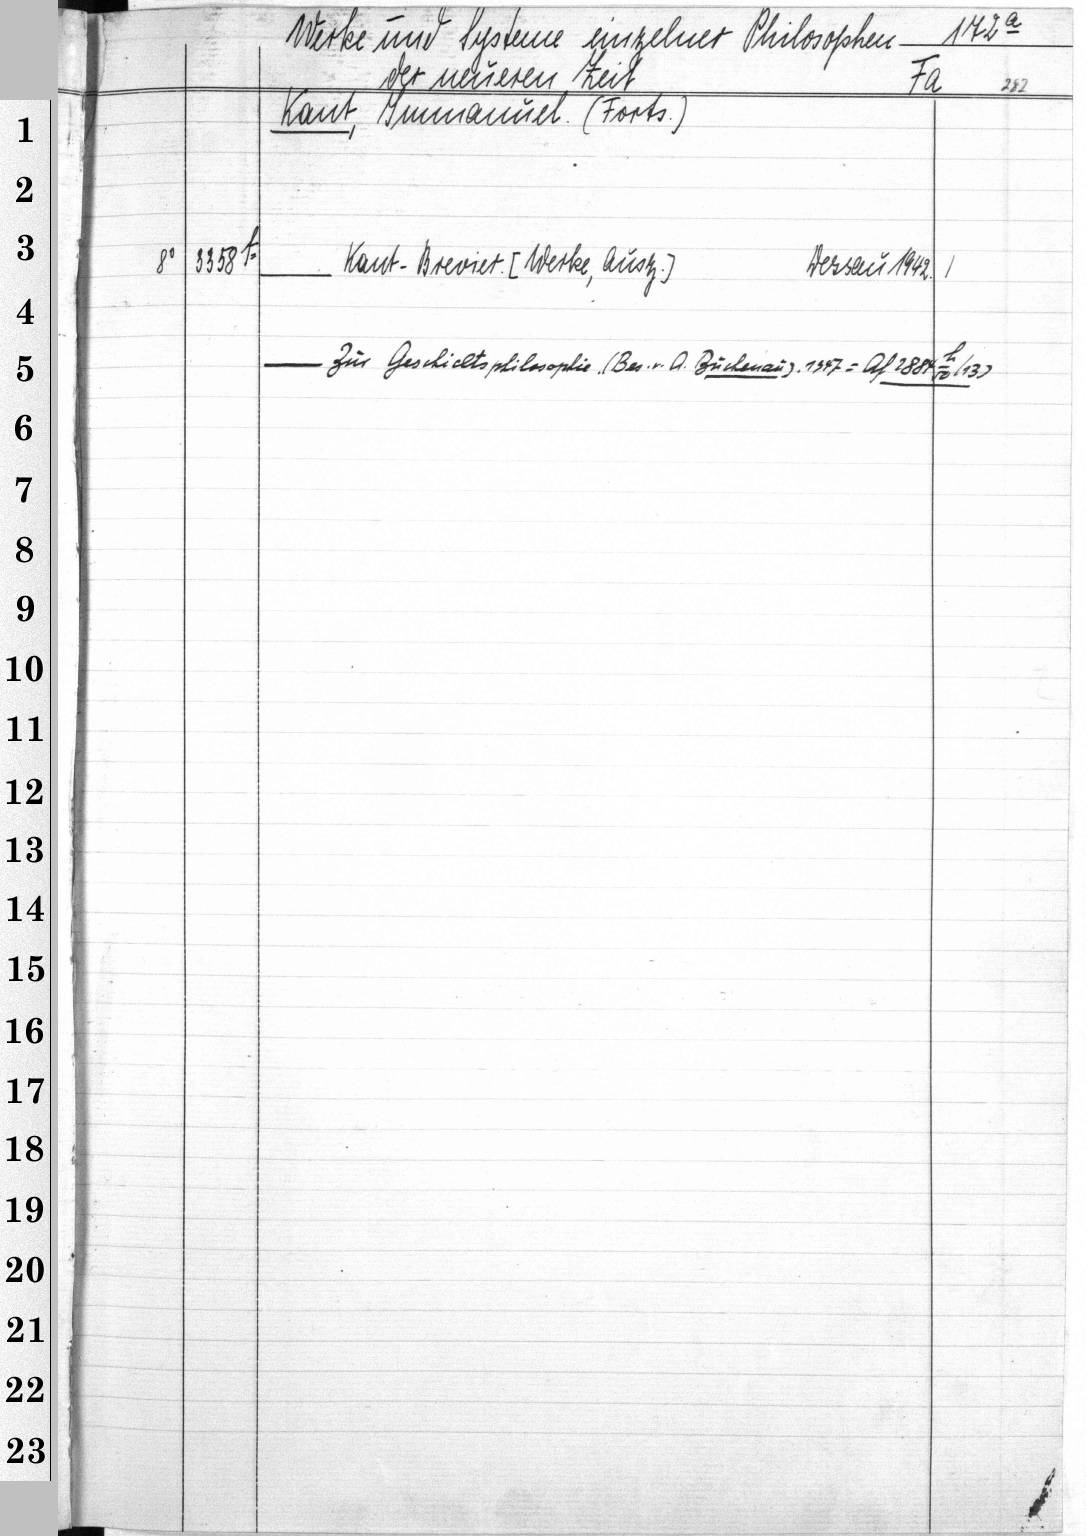 Werke und Systeme einzelner Philosophen 172a
der neueren Zeit Fa 282
Kant, Immanuel. (Forts.)
1
2
3 8° 3358 t= Kant-Brevier. [Werke, Ausz.] Dessau 1942. /
4
5 Zur Geschichtsphilosophie. (Bes. v. A. Buchenau). 1947 = Af 2884 h/50 (13)
6
7
8
9
10
11
12
13
14
15
16
17
18
19
20
21
22
23